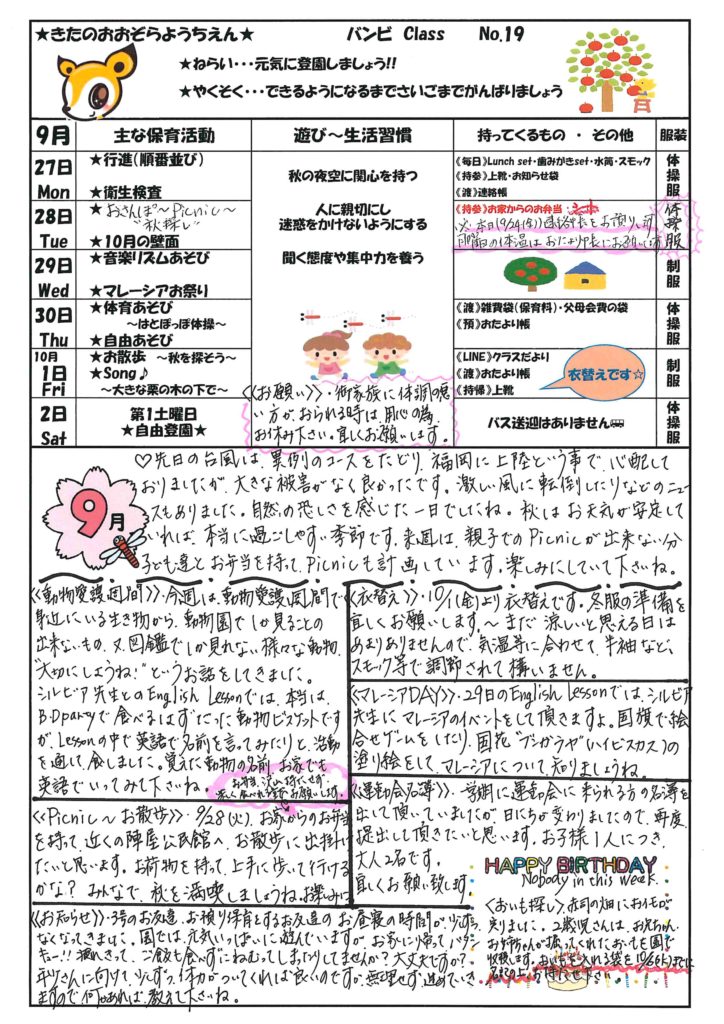 ★きたのおおぞらようちえん★ バンビ Class No.19
★ねらい・・・元気に登園しましょう!!
★やくそく・・・できるようになるまでさいごまでがんばりましょう
9月 主な保育活動 遊び~生活習慣 持ってくるもの ・ その他 服装
27日 Mon
★行進(順番並び)
★衛生検査
秋の夜空に関心を持つ
《毎日》Lunch set・歯みがきset・水筒・スモック
《持参》上靴・お知らせ袋
《渡》連絡帳
体操服
28日 Tue
★おさんぽ~Picnic~
"秋探し"
★10月の壁面
人に親切にし
迷惑をかけないようにする
《持参》お家からのお弁当
※本日(9/24(金))連絡帳をお預りします
月曜日の体温はおたより帳にお願いします
体操服
29日 Wed
★音楽リズムあそび
★マレーシアお祭り
聞く態度や集中力を養う
制服
30日 Thu
★体育あそび
~はとぽっぽ体操~
★自由あそび
《渡》雑費袋(保育料)・父母会費の袋
《預》おたより帳
体操服
10月 1日 Fri
★お散歩 ~秋を探そう~
★Song♪
~大きな栗の木の下で~
《LINE》クラスだより
《渡》おたより帳
《持帰》上靴
衣替えです☆
制服
《お願い》・御家族に体調の悪
い方がおられる時は、用心の為
お休み下さい。宜しくお願いします。
2日 Sat
第1土曜日
★自由登園★
バス送迎はありません
体操服
9月
♡先日の台風は、異例のコースをたどり、福岡に上陸という事で、心配して
おりましたが、大きな被害がなく良かったです。激しい風に転倒したりなどのニュー
スもありました。自然の恐しさを感じた一日でしたね。秋はお天気が安定して
いれば、本当に過ごしやすい季節です。来週は、親子でのPicnicが出来ない分
子ども達とお弁当を持って、Picnicも計画しています。楽しみにしていて下さいね。
《動物愛護週間》・今週は、動物愛護週間で
身近にいる生き物から、動物園でしか見ることの
出来ないもの、又、図鑑でしか見れない様々な動物、
"大切にしようね!"というお話をしてきました。
シルビア先生とのEnglish Lessonでは、本当は、
B.Dpartyで食べるはずだった動物ビスケットです
が、Lessonの中で英語で名前を言ってみたりと、活動
を通して、食しました。覚えた動物の名前、お家でも
英語でいってみて下さいね。
《Picnic~お散歩》・9/28(火)、お家からのお弁当
を持って、近くの陣屋公民館へ、お散歩に出掛け
たいと思います。お荷物を持って、上手に歩いて行ける
かな? みんなで、秋を満喫しましょうね。お楽みに
《衣替え》・10/1(金)より衣替えです。冬服の準備を
宜しくお願いします。~まだ涼しいと思える日は
あまりありませんので、気温等に合わせて、半袖など、
スモック等で調節されて構いません。
《マレーシアDAY》・29日のEnglish Lessonでは、シルビア
先生にマレーシアのイベントをして頂きますよ。国旗で絵
合せゲームをしたり、国花"ブンガラヤ"(ハイビスカス)の
塗り絵をして、マレーシアについて、知りましょうね。
《運動会名簿》・一学期に運動会に来られる方の名簿を
出して頂いていましたが、日にちが変わりましたので、再度、
提出して頂きたいと思います。お子様1人につき、
大人2名です。
宜しくお願い致します
HAPPY BIRTHDAY
Nobody in this week.
《お知らせ》・3号のお友達、お預り保育をするお友達のお昼寝の時間が、少しずつ
なくなってきました。園では、元気いっぱいに遊んでいますが、お家に帰ってバタン
キュー!! 疲れきって、ご飯も食いずにねむってしまったりしてませんか? 大丈夫ですか?
年少さんに向けて少しずつ、体力がついてくれば良いのですが、無理せず進めていき
ますので何かあれば教えて下さいね。
《おいも探し》・赤司の畑においもが
実りました。2歳児さんは、お兄ちゃん
お姉ちゃんが掘ってくれたおいもを園で